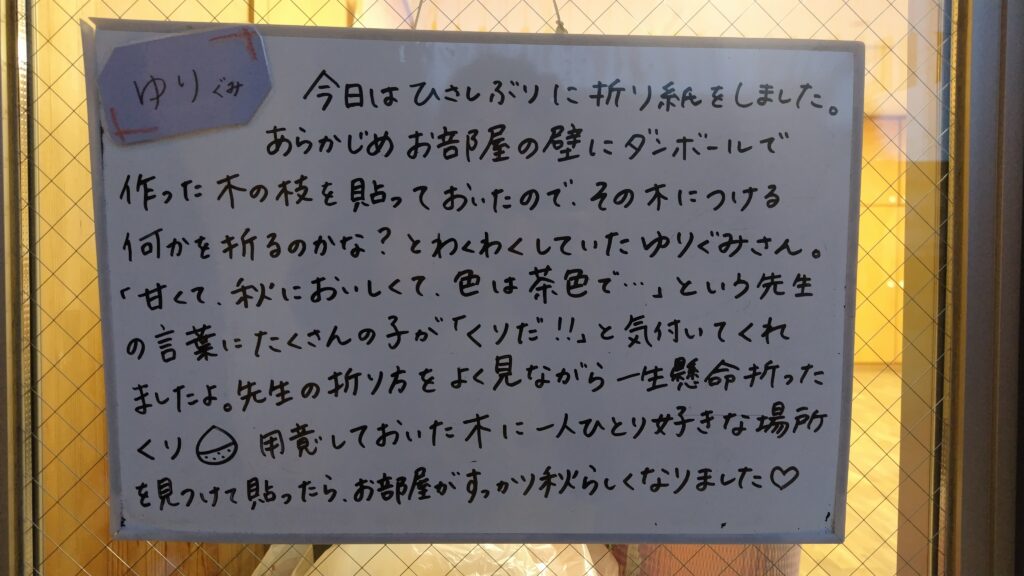 ゆりぐみ
今日はひさしぶりに折り紙をしました。
あらかじめお部屋の壁にダンボールで
作った木の枝を貼っておいたので、その木につける
何かを折るのかな?とわくわくしていたゆりぐみさん。
「甘くて、秋においしくて、色は茶色で…」という先生
の言葉にたくさんの子が「くりだ!!」と気付いてくれ
ましたよ。先生の折り方をよく見ながら一生懸命折った
くり 用意しておいた木に一人ひとり好きな場所
を見つけて貼ったら、お部屋がすっかり秋らしくなりました♡